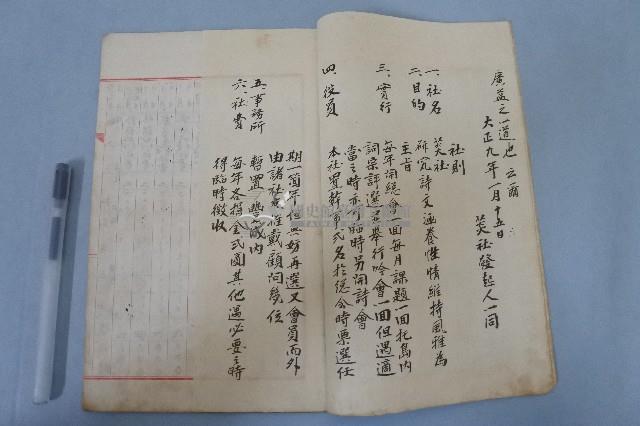 廣益之一道也云爾
大正九年一月十五日
芸社發起人一同
社則
一、社名 芸社
二、目的 研究詩文涵養性情維持風雅為
主旨
三、實行 每年開總會一回每月課題一回托島內
詞宗評選名舉行吟會一回但遇適
當之時亦臨時另開詩會
四、役員 本社置幹事弍名於總會時票選任
期一箇年但無妨再選又會員而外
由諸社友推戴顧問幾位
五、事務所 暫置 內
六、社費 每年各捐金弍圓其他遇必要之時
得臨時徵收